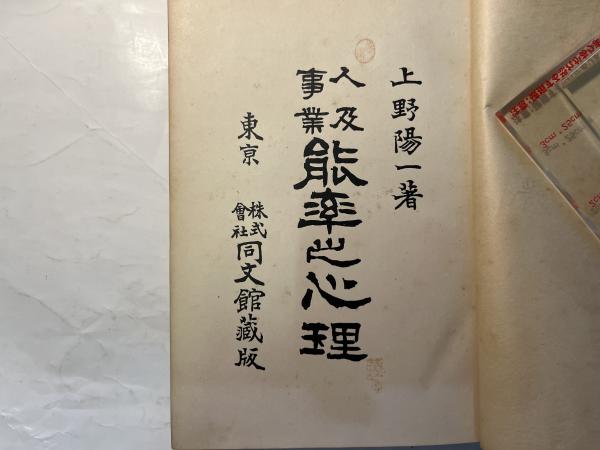 上野陽一著
人及事業能率之心理
東京 株式會社同文館藏版